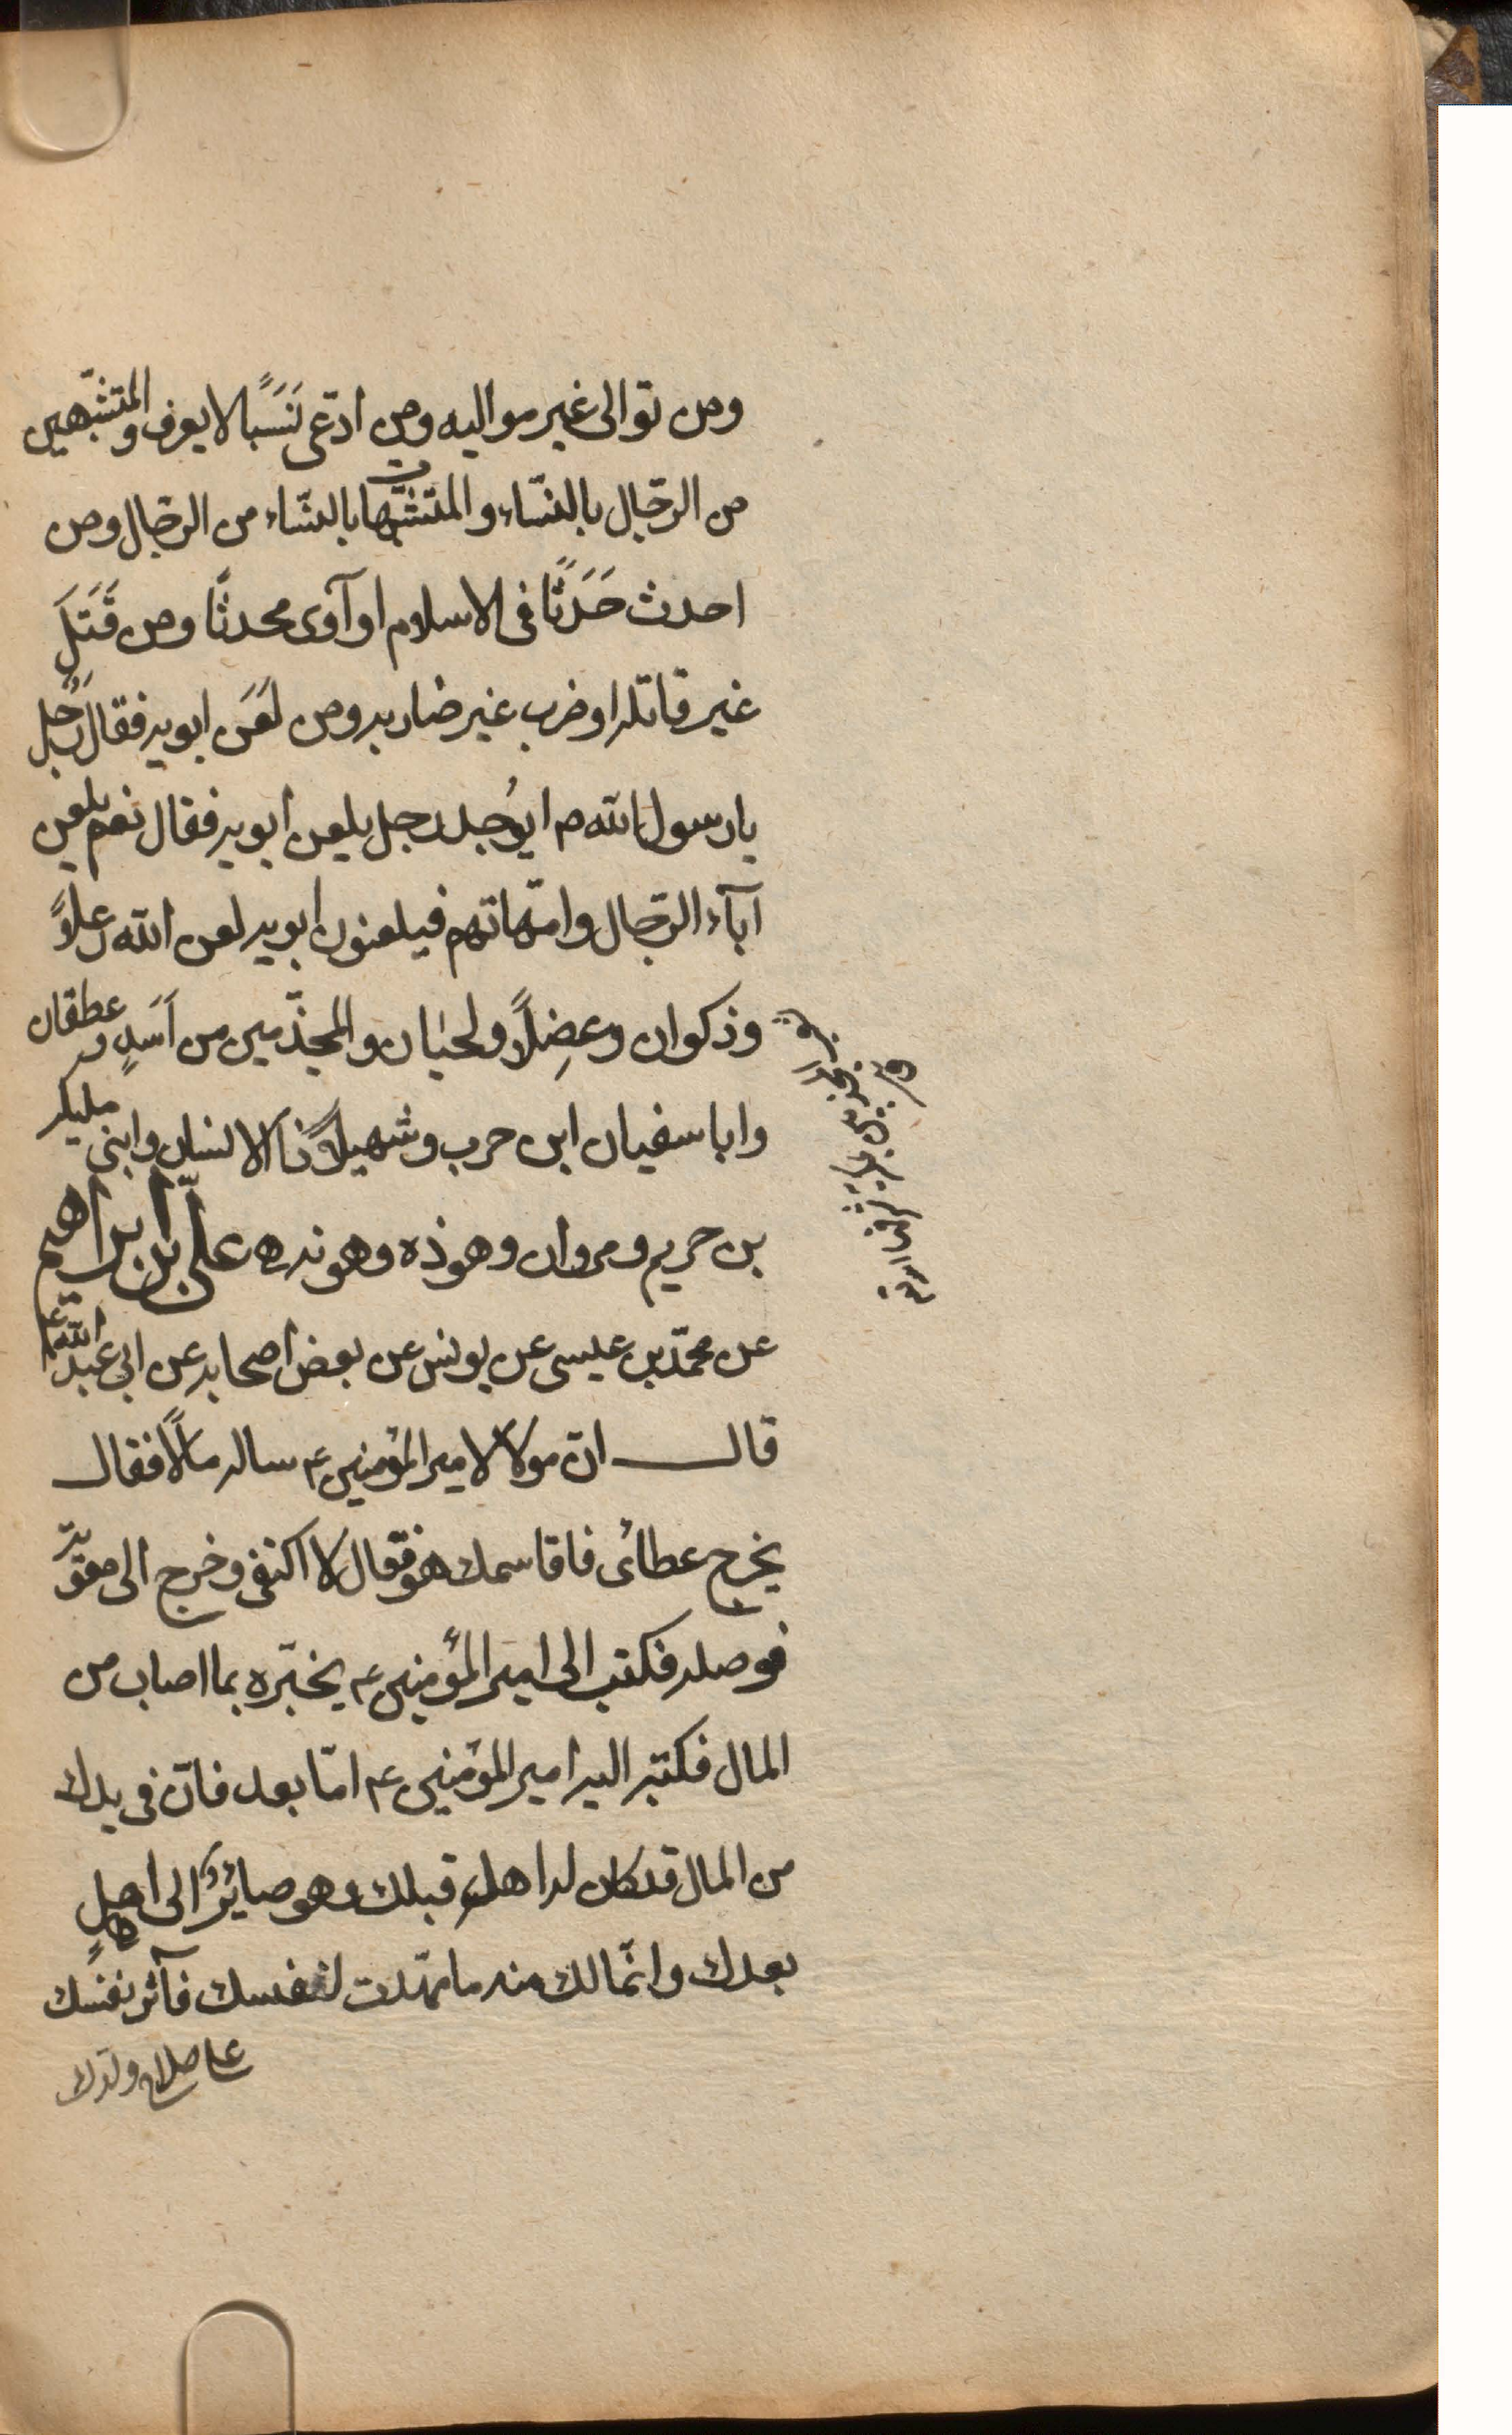 ومن توالى غير مواليه ومن ادّعى نَسَبًا لا يعرف والمتشبّهين
من الرّجال بالنّساء والمتشبّهات بالنّساء من الرجال ومن
احدث حَدَثًا فى الاسلام او آوى محدثًا ومن قَتَلَ
غير قاتله او ضرب غير ضاربه ومن لَعَن ابويه فقال رَجُل
يا رسول الله ص ايُوجد رجل يلعن ابويه فقال نعم يلعن
آباء الرّجال وامّهاتهم فيلعنون ابويه لعن الله رعلاً
وذكوان وعضِلاً ولحيان والمجذّمين من اَسَدٍ وعطقان
وابا سفيان ابن حرب وشهيلاً ذا الاسنان وابنى مليكه
بن حريم ومروان وهوذه وهونه علىّ بن ابراهيم
عن محمّد بن عيسى عن يونس عن بعض اصحابه عن ابى عبد الله ع
قال انّ مولاً لامير المؤمنين ع ساله مالاً فقال
يخرج عطائى فاقاسمك هو فقال لا اكتفى وخرج الى معوية
فوصله فكتب الى امير المؤمنين ع يخبّره بما اصاب من
المال فكتب اليه امير المؤمنين ع امّا بعد فانّ فى يدك
من المال قد كان له اهل قبلك وهو صائر الى اهلٍ
بعدك وانّما لك منه ما مهّدت لنفسك فآثر نفسك
على صلاح ولدك